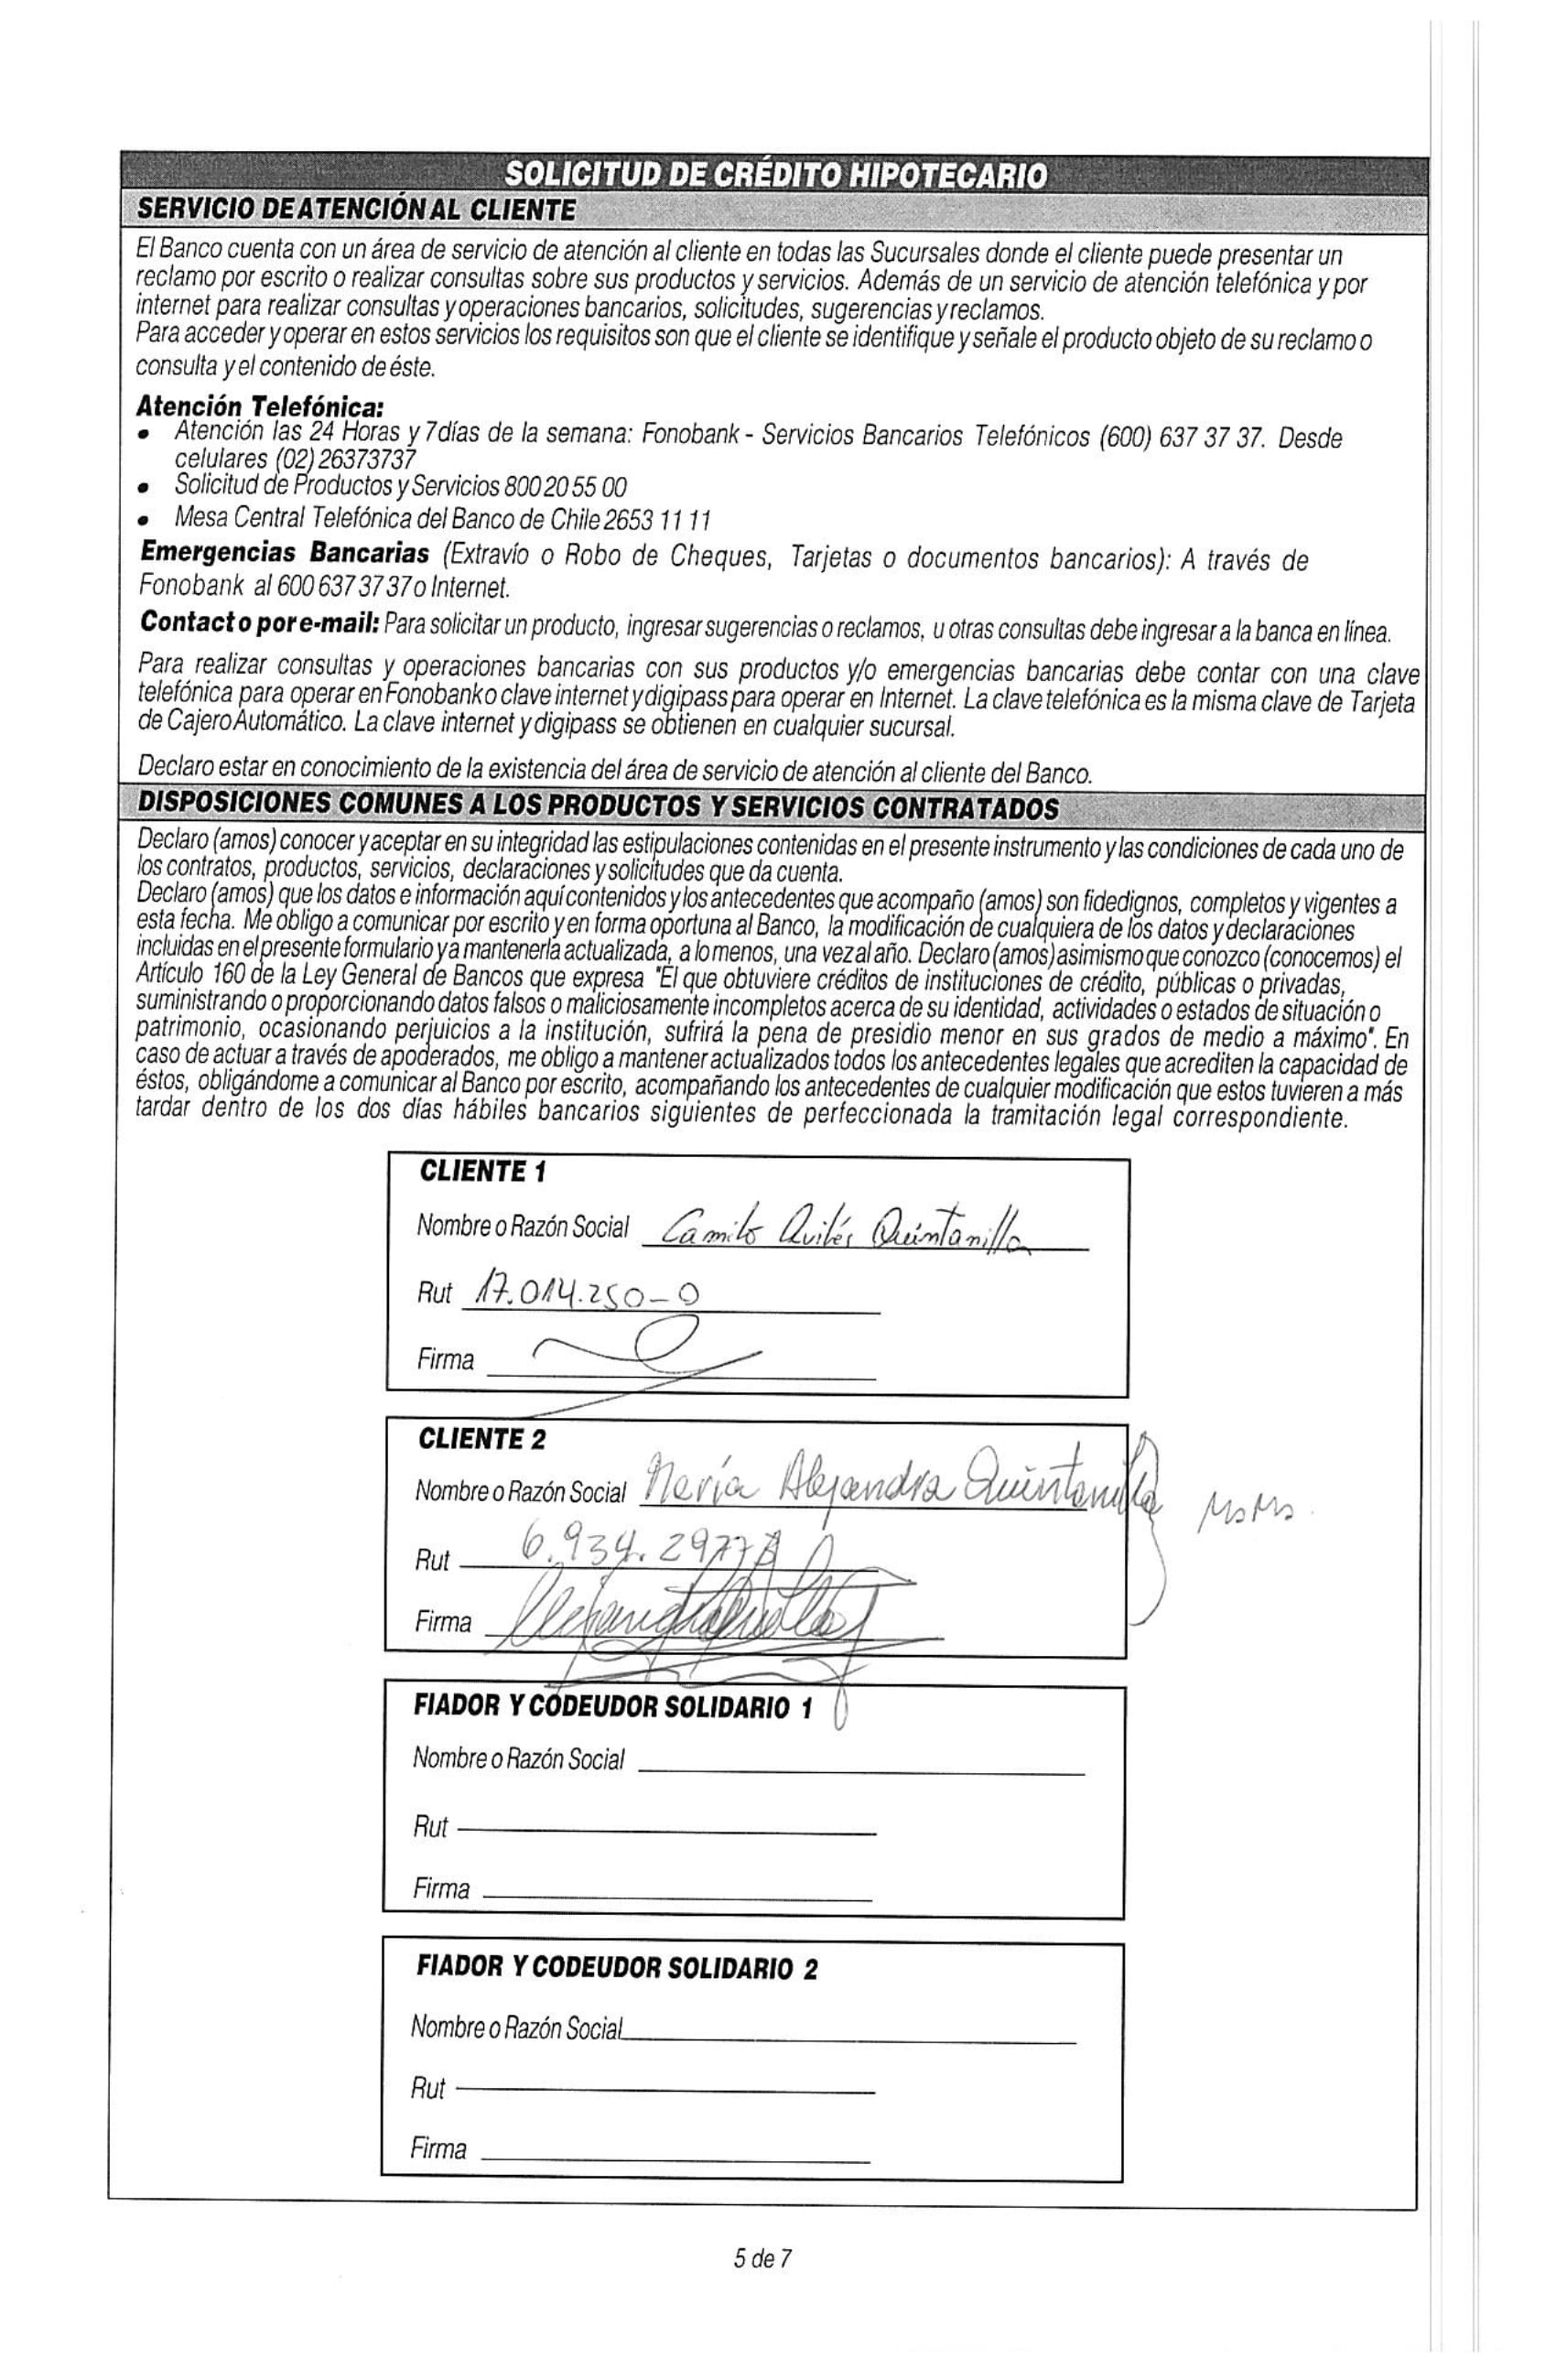 SOLICITUD DE CRÉDITO HIPOTECARIO
SERVICIO DE ATENCIÓN AL CLIENTE
El Banco cuenta con un área de servicio de atención al cliente en todas las Sucursales donde el cliente puede presentar un
reclamo por escrito o realizar consultas sobre sus productos y servicios. Además de un servicio de atención telefónica y por
internet para realizar consultas y operaciones bancarios, solicitudes, sugerencias y reclamos.
Para acceder y operar en estos servicios los requisitos son que el cliente se identifique y señale el producto objeto de su reclamo o
consulta y el contenido de éste.
Atención Telefónica:
• Atención las 24 Horas y 7días de la semana: Fonobank - Servicios Bancarios Telefónicos (600) 637 37 37. Desde
celulares (02) 26373737
• Solicitud de Productos y Servicios 800 20 55 00
• Mesa Central Telefónica del Banco de Chile 2653 11 11
Emergencias Bancarias (Extravío o Robo de Cheques, Tarjetas o documentos bancarios): A través de
Fonobank al 600 637 37 37 o Internet.
Contacto por e-mail: Para solicitar un producto, ingresar sugerencias o reclamos, u otras consultas debe ingresar a la banca en línea.
Para realizar consultas y operaciones bancarias con sus productos y/o emergencias bancarias debe contar con una clave
telefónica para operar en Fonobank o clave internet y digipass para operar en Internet. La clave telefónica es la misma clave de Tarjeta
de Cajero Automático. La clave internet y digipass se obtienen en cualquier sucursal.
Declaro estar en conocimiento de la existencia del área de servicio de atención al cliente del Banco.
DISPOSICIONES COMUNES A LOS PRODUCTOS Y SERVICIOS CONTRATADOS
Declaro (amos) conocer y aceptar en su integridad las estipulaciones contenidas en el presente instrumento y las condiciones de cada uno de
los contratos, productos, servicios, declaraciones y solicitudes que da cuenta.
Declaro (amos) que los datos e información aquí contenidos y los antecedentes que acompaño (amos) son fidedignos, completos y vigentes a
esta fecha. Me obligo a comunicar por escrito y en forma oportuna al Banco, la modificación de cualquiera de los datos y declaraciones
incluidas en el presente formulario y a mantenerla actualizada, a lo menos, una vez al año. Declaro (amos) asimismo que conozco (conocemos) el
Artículo 160 de la Ley General de Bancos que expresa "El que obtuviere créditos de instituciones de crédito, públicas o privadas,
suministrando o proporcionando datos falsos o maliciosamente incompletos acerca de su identidad, actividades o estados de situación o
patrimonio, ocasionando perjuicios a la institución, sufrirá la pena de presidio menor en sus grados de medio a máximo". En
caso de actuar a través de apoderados, me obligo a mantener actualizados todos los antecedentes legales que acrediten la capacidad de
éstos, obligándome a comunicar al Banco por escrito, acompañando los antecedentes de cualquier modificación que estos tuvieren a más
tardar dentro de los dos días hábiles bancarios siguientes de perfeccionada la tramitación legal correspondiente.
CLIENTE 1
Nombre o Razón Social Camilo Avilés Quintanilla
Rut 17.014.250-0
Firma
CLIENTE 2
Nombre o Razón Social María Alejandra Quintanilla
Rut 6.934.297
Firma
FIADOR Y CODEUDOR SOLIDARIO 1
Nombre o Razón Social
Rut
Firma
FIADOR Y CODEUDOR SOLIDARIO 2
Nombre o Razón Social
Rut
Firma
5 de 7